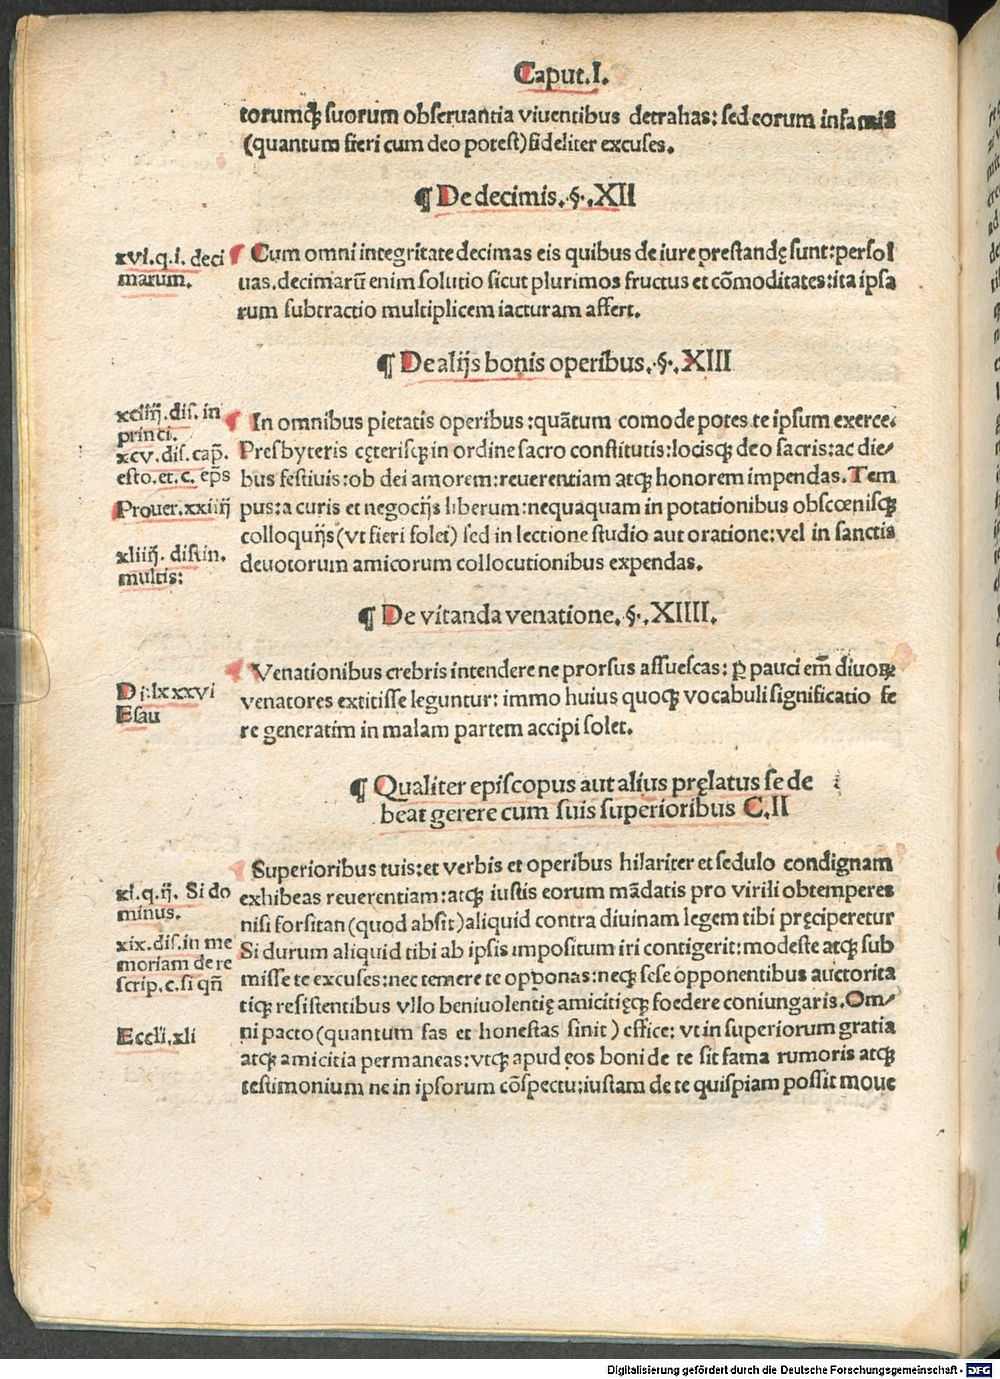 Caput.I.
torumqꝫ suorum obseruantia viuentibus detrahas: sed eorum infamiã
(quantum fieri cum deo potest) fideliter excuses.
¶ De decimis.§.XII
xvi.q.i. deci
marum.
Cum omni integritate decimas eis quibus de iure prestandę sunt: persol
uas. decimarũ enim solutio sicut plurimos fructus et cõmoditates: ita ipsa
rum subtractio multiplicem iacturam affert.
¶ De alijs bonis operibus.§.XIII
xciiij. dis. in
princi.
xcv. dis. cap̃.
esto. et. c. ep̃s
Prouer.xxiiij
xliiij. distin.
multis:
In omnibus pietatis operibus: quãtum comode potes te ipsum exerce.
Presbyteris cęterisqꝫ in ordine sacro constitutis: locisqꝫ deo sacris: ac die-
bus festiuis: ob dei amorem: reuerentiam atqꝫ honorem impendas. Tem
pus: a curis et negocijs liberum: nequaquam in potationibus obscœnisqꝫ
colloquijs (vt fieri solet) sed in lectione studio aut oratione: vel in sanctis
deuotorum amicorum collocutionibus expendas.
¶ De vitanda venatione.§.XIIII.
Di:lxxxvi
Esau
Venationibus crebris intendere ne prorsus assuescas: ꝑ pauci em̃ diuoꝝ
venatores extitisse leguntur: immo huius quoqꝫ vocabuli significatio fe
re generatim in malam partem accipi solet.
¶ Qualiter episcopus aut alius pręlatus se de
beat gerere cum suis superioribus C.II
xi.q.ij. Si do
minus.
xix.dis.in me
moriam de re
scrip.c.si qñ
Eccli.xli
Superioribus tuis: et verbis et operibus hilariter et sedulo condignam
exhibeas reuerentiam: atqꝫ iustis eorum mãdatis pro virili obtemperes
nisi forsitan (quod absit) aliquid contra diuinam legem tibi pręciperetur
Si durum aliquid tibi ab ipsis impositum iri contigerit: modeste atqꝫ sub
misse te excuses: nec temere te opponas: neqꝫ sese opponentibus auctorita
tiqꝫ resistentibus vllo beniuolentię amicitięqꝫ foedere coniungaris. Om-
ni pacto (quantum fas et honestas sinit) effice: vt in superiorum gratia
atqꝫ amicitia permaneas: vtqꝫ apud ęos boni de te sit fama rumoris atqꝫ
testimonium ne in ipsorum cõspectu: iustam de te quispiam possit moue
Digitalisierung gefördert durch die Deutsche Forschungsgemeinschaft - DFG